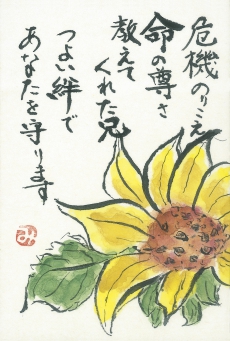 危機のりこえ
命の尊さ
教えて
くれた兄
つよい絆で
あなたを守ります
み